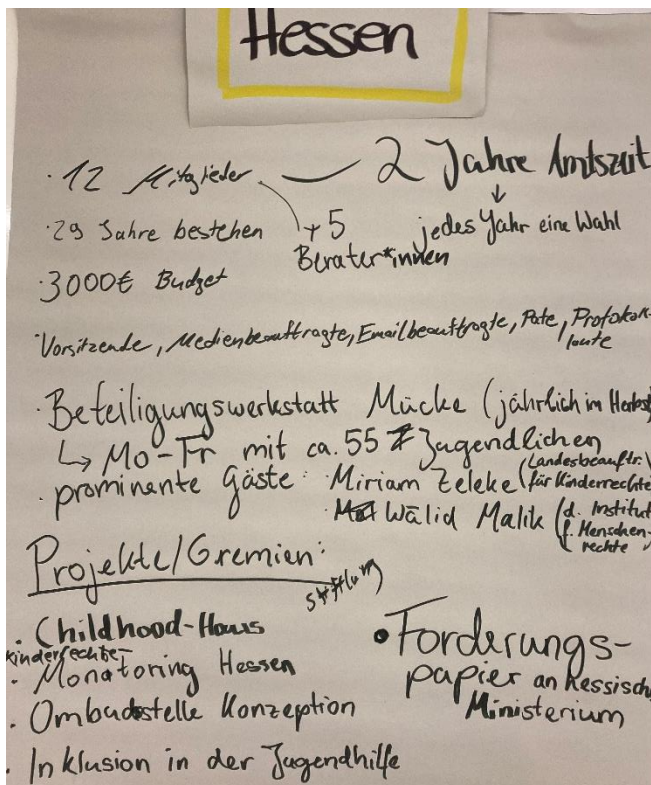 Hessen
· 12 Mitglieder — 2 Jahre Amtszeit
↓
· 29 Jahre bestehen
+ 5
Berater*innen
jedes Yahr eine Wahl
· 3000€ Budget
· Vorsitzende, Medienbeauftragte, Emailbeauftragte, Pate, Protokoll-
leute
· Beteiligungswerkstatt Mücke (jährlich im Herbst)
↳ Mo-Fr mit ca. 55 Jugendlichen
· prominente Gäste: Miriam Zeleke (Landesbeauftr.
für Kinderrechte)
Walid Malik (d. Institut
f. Menschen-
rechte)
Projekte/Gremien:
· Childhood-Haus
kinderrechte-
· Monatoring Hessen
· Ombudstelle Konzeption
· Inklusion in der Jugendhilfe
• Forderungs-
papier an Hessisch
Ministerium